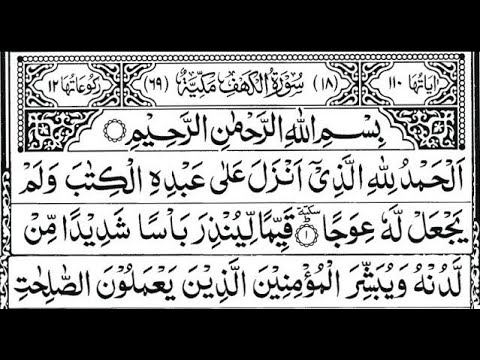 اٰیَاتُهَا ۱۱۰ (۱۸) سُوْرَةُ الْکَهْفِ مَکِّیَّةٌ (۶۹) رُکُوْعَاتُهَا ۱۲
بِسْمِ اللّٰهِ الرَّحْمٰنِ الرَّحِیْمِ
اَلْحَمْدُ لِلّٰهِ الَّذِیْۤ اَنْزَلَ عَلٰی عَبْدِهِ الْکِتٰبَ وَلَمْ
یَجْعَلْ لَّهٗ عِوَجًا ۱ قَیِّمًا لِّیُنْذِرَ بَاْسًا شَدِیْدًا مِّنْ
لَّدُنْهُ وَیُبَشِّرَ الْمُؤْمِنِیْنَ الَّذِیْنَ یَعْمَلُوْنَ الصّٰلِحٰتِ